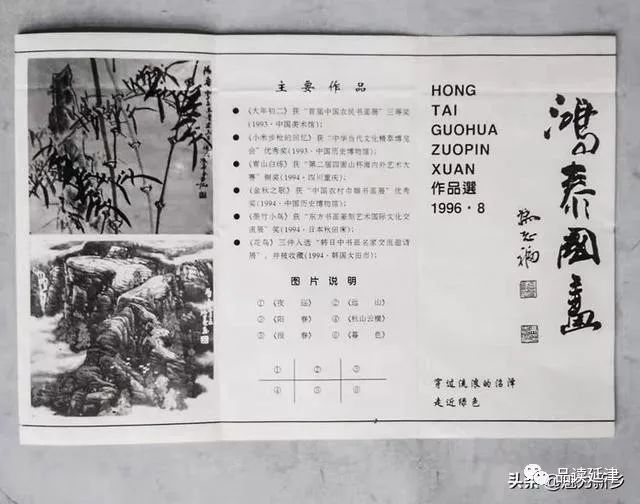 主要作品
● 《大年初二》获“首届中国农民书画展”三等奖
(1993·中国美术馆);
● 《小米步枪的回忆》获“中华当代文化精萃博览
会”优秀奖(1993·中国历史博物馆);
● 《青山白练》获“第二届四面山杯海内外艺术大
赛”铜奖(1994·四川重庆);
● 《金秋之歌》获“中国农村巾帼书画展”优秀
奖(1994·中国历史博物馆);
● 《墨竹小鸟》获“东方书画篆刻艺术国际文化交
流展”奖(1994·日本秋田市);
● 《花鸟》三件入选“韩日中书画名家交流邀请
展”,并被收藏(1994·韩国大田市);
图片说明
① 《夜 》 ② 《远山》
③ 《阳春》 ④ 《秋山云横》
⑤ 《报春》 ⑥ 《暮色》
① ② ③
④ ⑤ ⑥
HONG
TAI
GUOHUA
ZUOPIN
XUAN
作品選
1996·8
鸿泰國畫
穿过流浪的沼泽
走近绿色
品读延津
头条